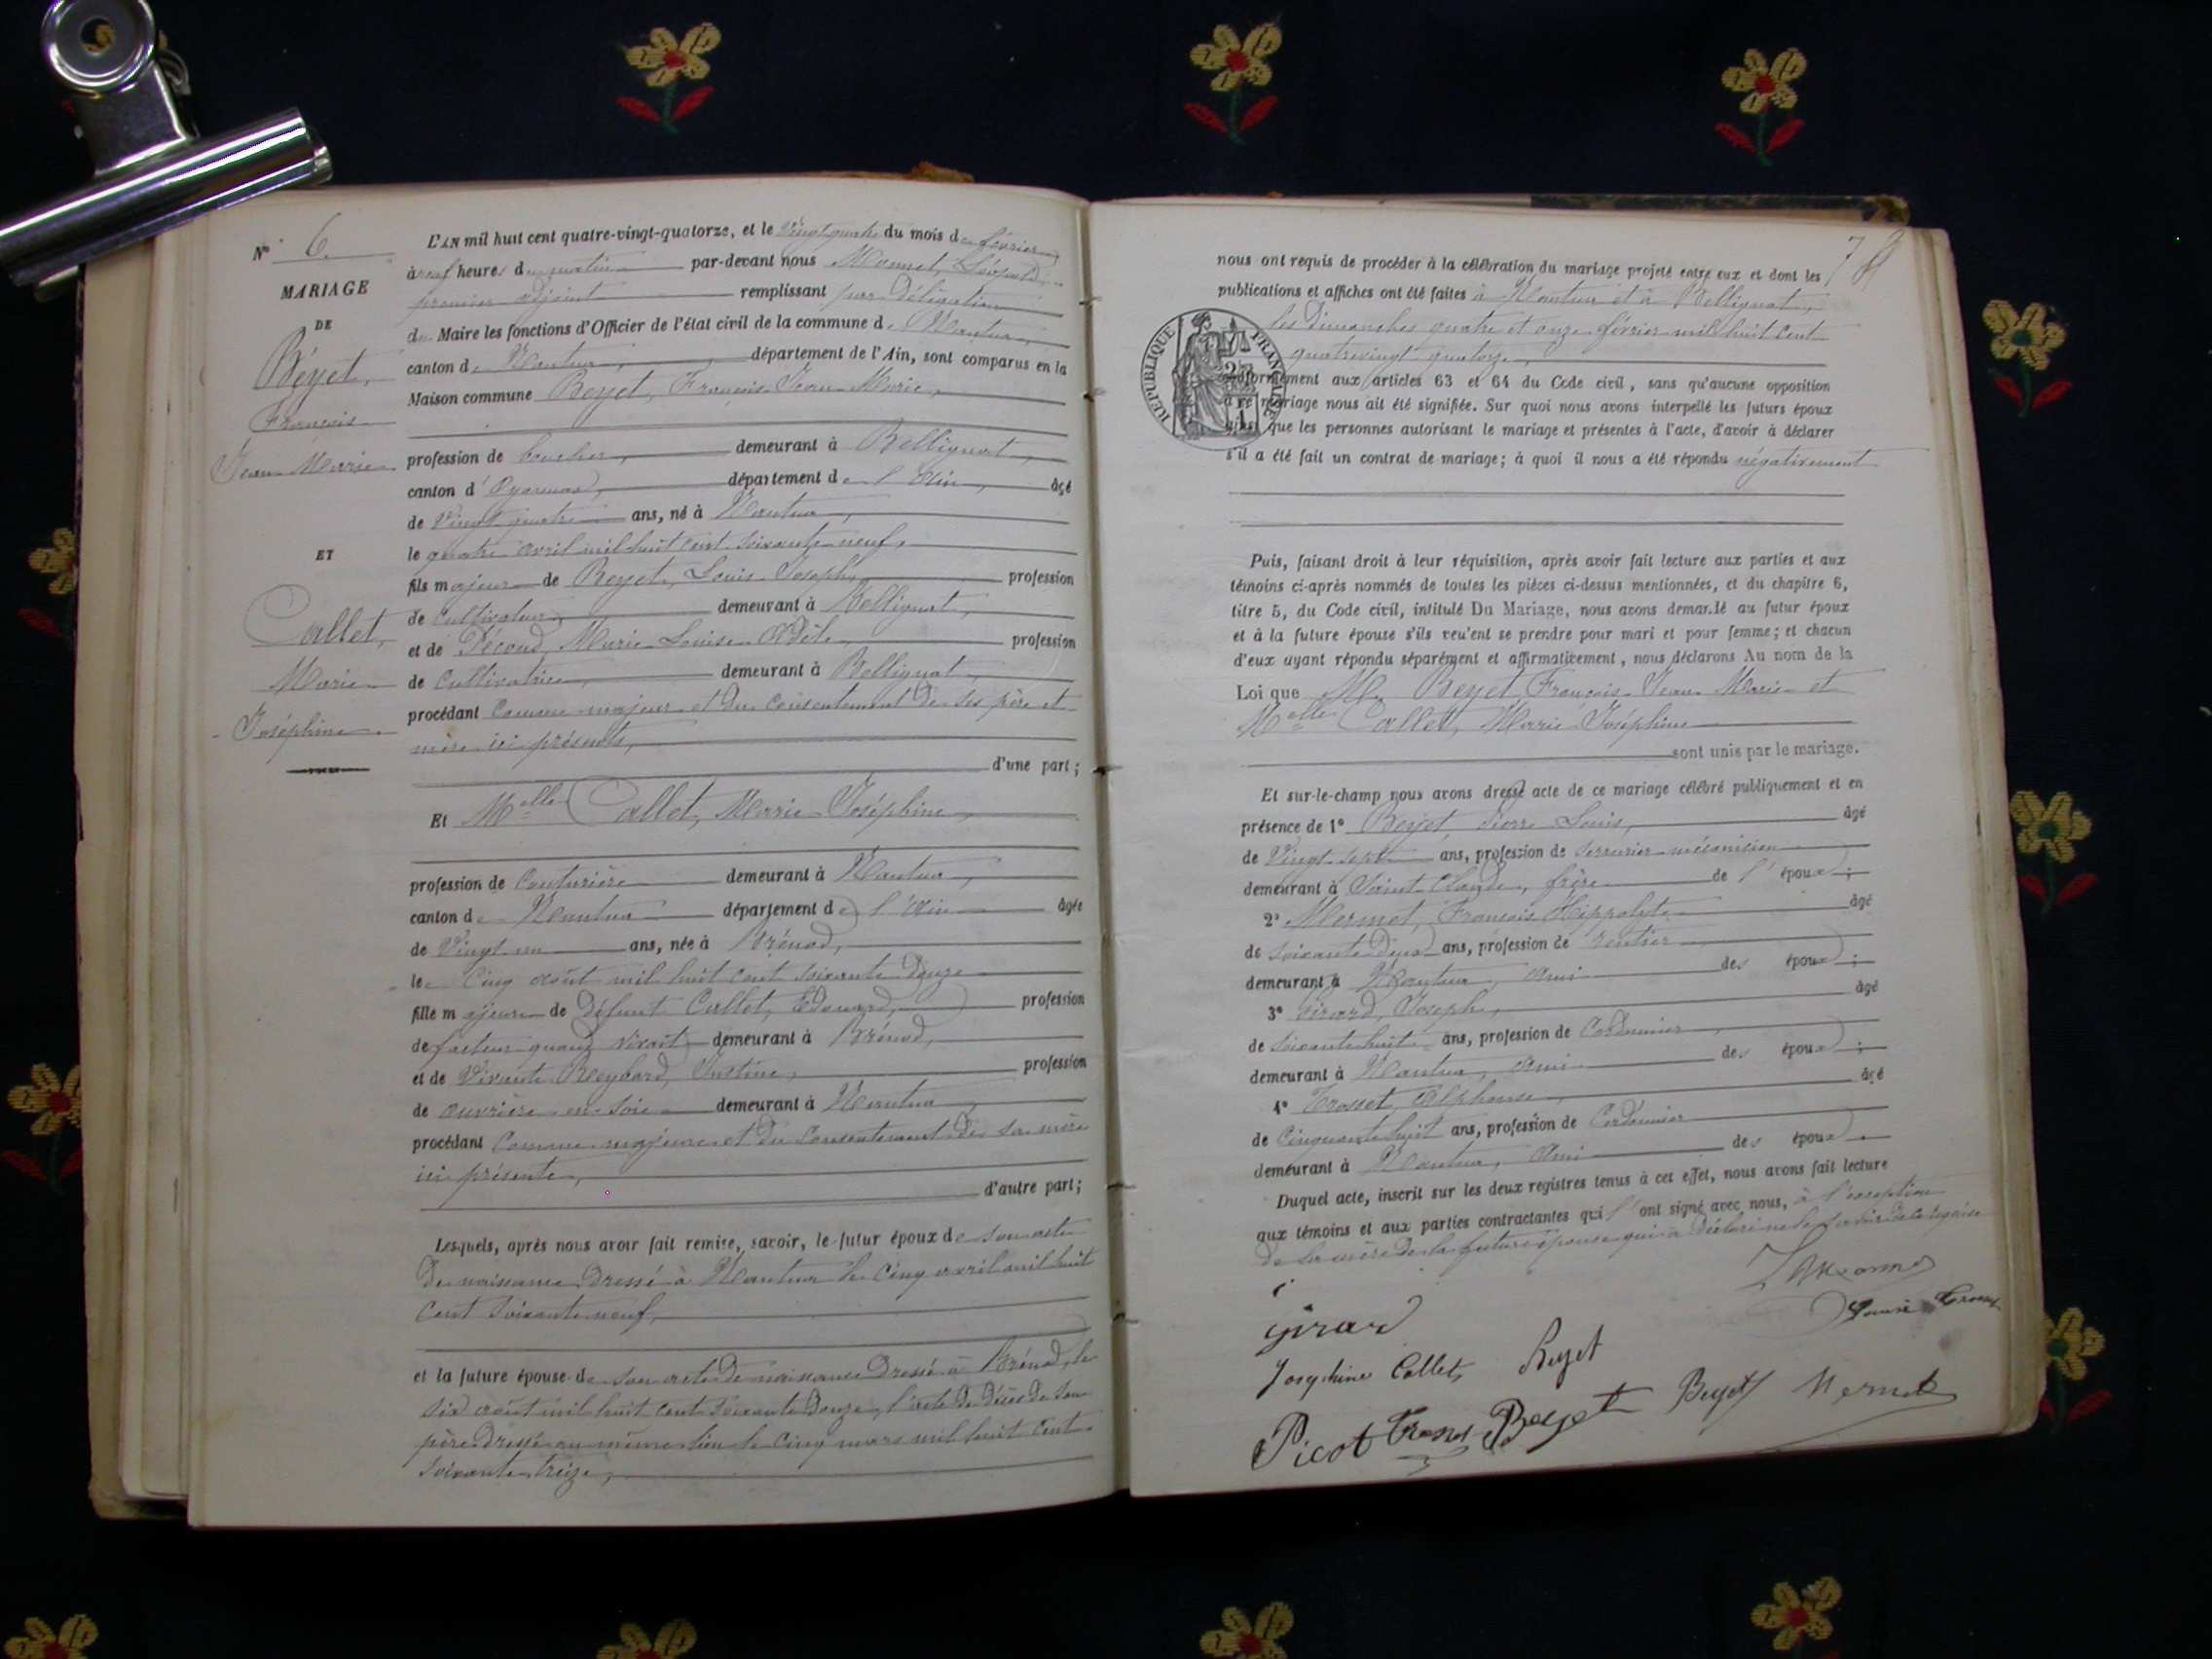 N° 6
MARIAGE
DE
Béyet,
François
Jean Marie
ET
Callet,
Marie
Joséphine
L'AN mil huit cent quatre-vingt-quatorze, et le Vingt quatre du mois de février
à neuf heures du matin par-devant nous
premier adjoint remplissant par délégation
du Maire les fonctions d'Officier de l'état civil de la commune de Nantua,
canton de Nantua, département de l'Ain, sont comparus en la
Maison commune Beyet, François Jean Marie,
profession de boucher, demeurant à Bellignat,
canton d'Oyonnax, département de l'Ain, âgé
de Vingt quatre ans, né à Nantua,
le quatre avril mil huit cent soixante neuf,
fils majeur de Beyet, Louis Joseph, profession
de Cultivateur, demeurant à Bellignat,
et de Sécond, Marie Louise Adèle, profession
de Cultivatrice, demeurant à Bellignat,
procédant Comme majeur et du consentement de ses père et
mère ici présents,
d'une part;
Et Melle Callet, Marie Joséphine,
profession de Couturière demeurant à Nantua,
canton de Nantua département de l'Ain âgée
de Vingt un ans, née à Brénod,
le Cinq août mil huit cent soixante douze
fille majeure de Défunt Callet, Edouard, profession
de facteur quand vivait demeurant à Brénod,
et de Vivante Reybard, Justine, profession
de ouvrière en soie demeurant à Nantua,
procédant Comme majeure et du Consentement de sa mère
ici présente,
d'autre part;
Lesquels, après nous avoir fait remise, savoir, le futur époux de son acte
de naissance dressé à Nantua le Cinq avril mil huit
Cent soixante neuf,
et la future épouse de son acte de naissance dressé à Brénod, le
six août mil huit cent soixante douze, l'acte de décès de son
père dressé au même lieu le Cinq mars mil huit Cent
soixante treize,
nous ont requis de procéder à la célébration du mariage projeté entre eux et dont les
publications et affiches ont été faites à Nantua et à Bellignat,
les dimanches quatre et onze février mil huit Cent
quatrevingt quatorze,
RÉPUBLIQUE FRANÇAISE
conformément aux articles 63 et 64 du Code civil, sans qu'aucune opposition
à ce mariage nous ait été signifiée. Sur quoi nous avons interpellé les futurs époux
ainsi que les personnes autorisant le mariage et présentes à l'acte, d'avoir à déclarer
s'il a été fait un contrat de mariage; à quoi il nous a été répondu négativement
Puis, faisant droit à leur réquisition, après avoir fait lecture aux parties et aux
témoins ci-après nommés de toutes les pièces ci-dessus mentionnées, et du chapitre 6,
titre 5, du Code civil, intitulé Du Mariage, nous avons demandé au futur époux
et à la future épouse s'ils veulent se prendre pour mari et pour femme; et chacun
d'eux ayant répondu séparément et affirmativement, nous déclarons Au nom de la
Loi que Mr Beyet, François Jean Marie et
Melle Callet, Marie Joséphine
sont unis par le mariage.
Et sur-le-champ nous avons dressé acte de ce mariage célébré publiquement et en
présence de 1° Beyet Pierre Louis, âgé
de Vingt sept ans, profession de serrurier mécanicien
demeurant à Saint Claude, frère de l'époux;
2° Mermet, François Hippolyte âgé
de soixante deux ans, profession de rentier
demeurant à Nantua, Ami des époux;
3° Girard, Joseph, âgé
de soixante huit ans, profession de Cordonnier,
demeurant à Nantua, Ami des époux;
4° Grosset, Alphonse, âgé
de Cinquante huit ans, profession de Cordonnier
demeurant à Nantua, Ami des époux.
Duquel acte, inscrit sur les deux registres tenus à cet effet, nous avons fait lecture
aux témoins et aux parties contractantes qui l'ont signé avec nous, à l'exception
de la mère de la future épouse qui a déclaré ne le savoir de ce requise
girard
Josephine Callet Beyet
Picot Beyet Beyet Mermet